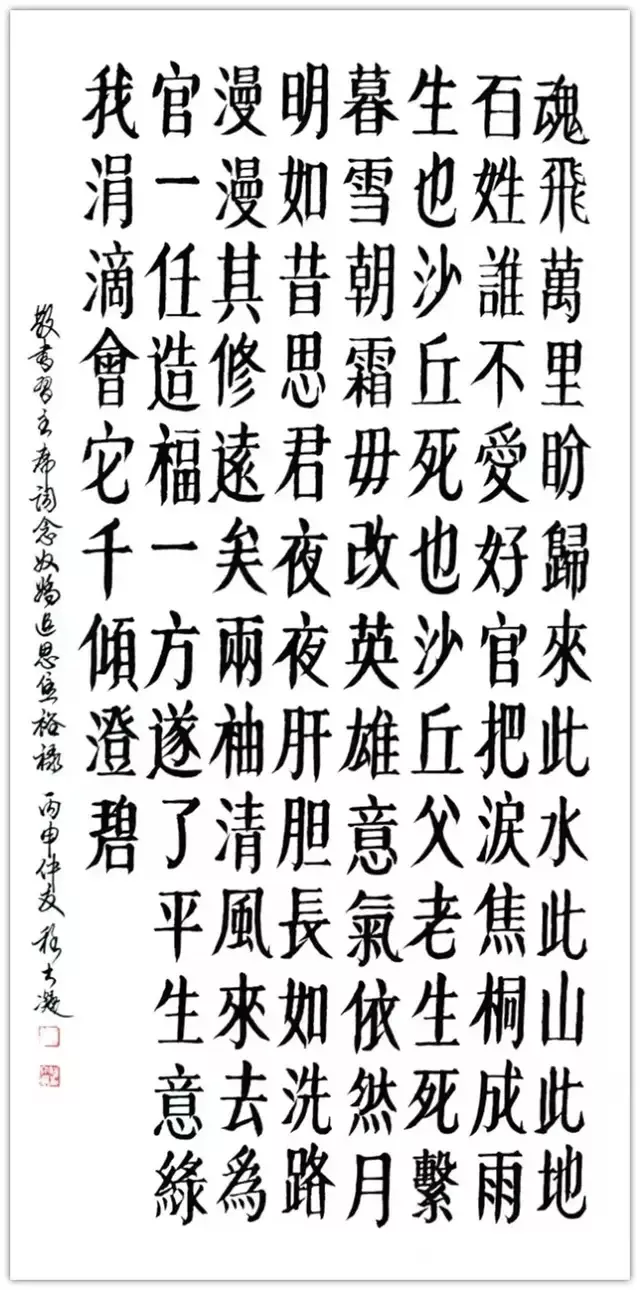 魂飛萬里盼歸來此水此山此地
百姓誰不愛好官把淚焦桐成雨
生也沙丘死也沙丘父老生死繫
暮雪朝霜毋改英雄意氣依然月
明如昔思君夜夜肝胆長如洗路
漫漫其修遠矣兩袖清風來去爲
官一任造福一方遂了平生意綠
我涓滴會它千傾澄碧
敬書習主席詞念奴嬌追思焦裕祿 丙申仲夏